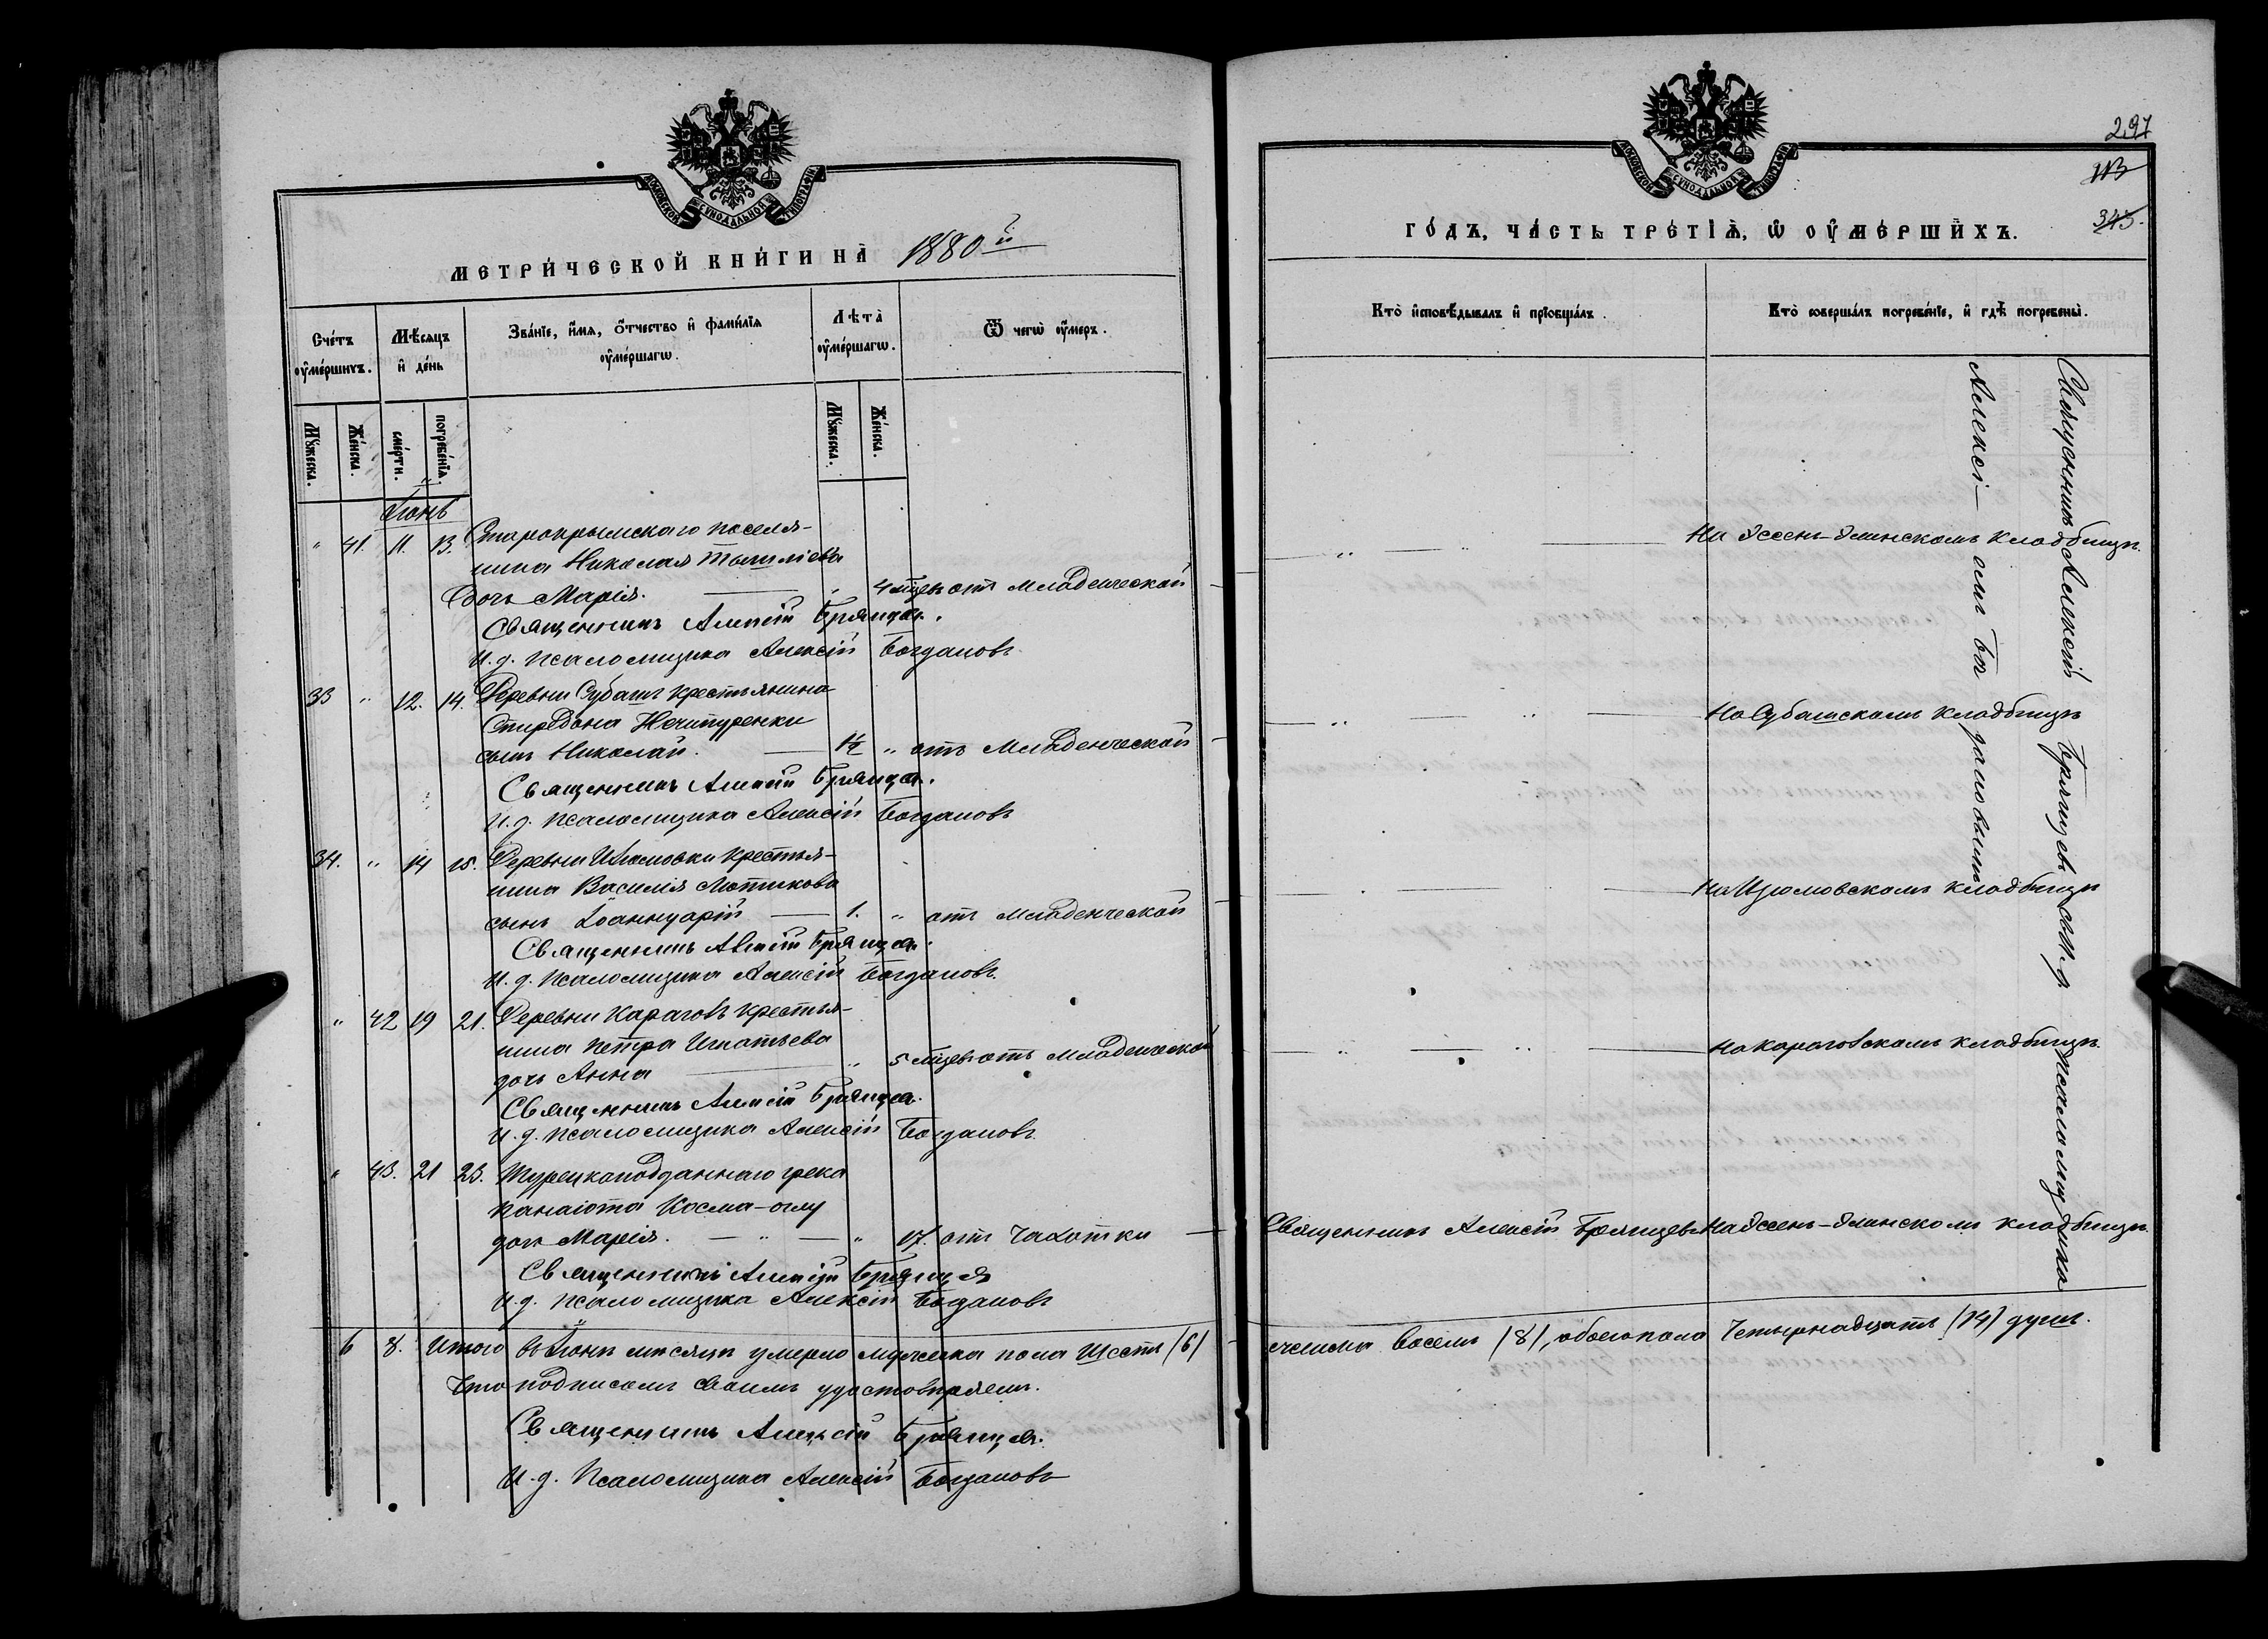 МОСКОВСКОЙ СУНОДАЛЬНОЙ ТИПОГРАФІИ
МЕТРИ́ЧЕСКОЙ КНИ́ГИ НА̀ 1880й
Сче́тъ ᲂу҆ме́ршихъ.
Мѣ́сяцъ и҆ де́нь
Зва́нїе, и҆́мя, ѻ҆́тчество и҆ фами́лїя ᲂу҆ме́ршагѡ.
Лѣта̀ ᲂу҆ме́ршагѡ.
Ѿ чегѡ̀ ᲂу҆́меръ.
Мꙋ́жеска.
Же́нска.
сме́рти.
погребе́нїѧ.
Мꙋ́жеска.
Же́нска.
Іюнь
" 41. 11. 13. Старокрымскаго поселя-
нина Николая
дочь Марія. — " 4 мѣцев отъ младенческой
Священникъ Алексій Брянцев.
И. д. псаломщика Алексій Богдановъ
33 " 12. 14. Деревни Субашъ крестьянина
Спиридона Нечитуренки
сынъ Николай. — 1½ " отъ младенческой
Священникъ Алексій Брянцев.
И. д. псаломщика Алексій Богдановъ
34. " 14 15. Деревни Изюмовки крестья-
нина Василія Лютикова
сынъ Іоаннуарій — 1. " отъ младенческой
Священникъ Алексій Брянцев.
И. д. псаломщика Алексій Богдановъ.
" 42 19 21. Деревни Карагозъ крестья-
нина Петра Игнатьева
дочь Анна — " 5 мѣцев отъ младенческой
Священникъ Алексій Брянцев.
И. д. псаломщика Алексій Богдановъ.
" 43. 21 23. Турецкоподданнаго грека
Панаіота Косма-оглу
дочь Марія. — " — " 17. отъ чахотки
Священникъ Алексій Брянцев
И. д. псаломщика Алексій Богдановъ
6 8. Итого въ Іюнѣ мѣсяцѣ умерло мужеска пола шесть (6)
Что подписомъ своимъ удостовѣряемъ.
Священникъ Алексій Брянцев.
И. д. Псаломщика Алексій Богдановъ
297
113
345.
МОСКОВСКОЙ СУНОДАЛЬНОЙ ТИПОГРАФІИ
ГО́ДЪ, ЧА́СТЬ ТРЕ́ТІѦ, Ѡ҆ ОУ҆МЕ́РШИХЪ.
Кто̀ и҆сповѣ́дывалъ и҆ прїѡбща́лъ.
Кто̀ соверша́лъ погребе́нїе, и҆ гдѣ̀ погребены̀.
Священникъ Алексій Брянцевъ съ и. д. псаломщика
Алексі-емъ Богдановымъ
На Эссенъ-Элинскомъ кладбищѣ.
На Субашскомъ кладбищѣ
На Изюмовскомъ кладбищѣ
На Карагозскомъ кладбищѣ.
Священникъ Алексій Брянцевъ На Эссенъ-Элинскомъ кладбищѣ.
женска восемь (8), обоего пола четырнадцать (14) душъ.